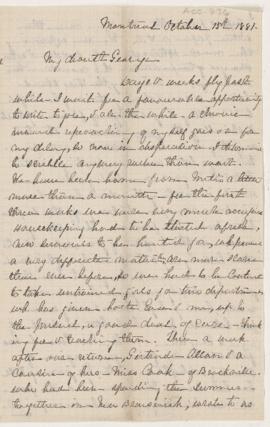 ACC 826
Montreal October 15th 1881.
My dearest George
Days & weeks fly past
while I wait for a favourable opportunity
to write to you, & all the while a chronic
inward upbraiding of myself goes on for
my delay, so now in desperation I determine
to scribble anyway rather than wait.
We have been home from Metis a little
more than a month - for the first
three weeks we were very much occupied
Housekeeping had to be started afresh,
new servants to be hunted for, which proved
a very difficult matter, as more scarce
than ever before, so we had to be content
to take untrained girls for two departments
which has given both Eva & me, up to
the present, a good deal of
for & teaching them. Then a week
after our return, Gertrude & a
Cousin of hers - Miss Cook of Brockville
who had been spending the summer
together in New Brunswick, wrote to us